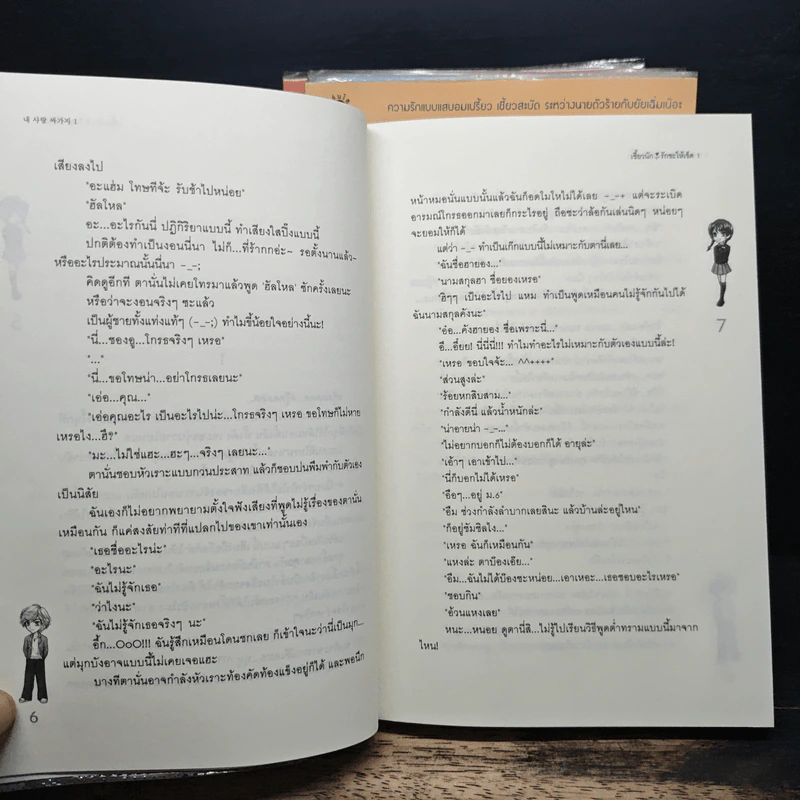 ความรักแบบแสบอมเปรี้ยว เขี้ยวสะบัด ระหว่างนายตัวร้ายกับยัยเฉิ่มเบ๊อะ
내 사랑 싸가지 1
เสียงลงไป
"อะแฮ่ม โทษทีจ้ะ รับช้าไปหน่อย"
"ฮัลโหล"
อะ...อะไรกันนี่ ปฏิกิริยาแบบนี้ ทำเสียงใสปิ๊งแบบนี้
ปกติต้องทำเป็นงอนนี่นา ไม่ก็...ที่ร้ากกอ่ะ~ รอตั้งนานแล้ว~
หรืออะไรประมาณนั้นนี่นา -_-;
คิดดูอีกที ตานั่นไม่เคยโทรมาแล้วพูด 'ฮัลโหล' ซักครั้งเลยนะ
หรือว่าจะงอนจริงๆ ซะแล้ว
เป็นผู้ชายทั้งแท่งแท้ๆ (-_-;) ทำไมขี้น้อยใจอย่างนี้นะ!
"นี่...ซองอู...โกรธจริงๆ เหรอ"
"..."
"นี่...ขอโทษน่า...อย่าโกรธเลยนะ"
"เอ่อ...คุณ..."
"เอ่อคุณอะไร เป็นอะไรไปน่ะ...โกรธจริงๆ เหรอ ขอโทษก็ไม่หาย
เหรอไง...ฮึ?"
"มะ...ไม่ใช่แฮะ...ฮะๆ...จริงๆ เลยนะ..."
ตานั่นชอบหัวเราะแบบกวนประสาท แล้วก็ชอบบ่นพึมพำกับตัวเอง
เป็นนิสัย
ฉันเองก็ไม่อยากพยายามตั้งใจฟังเสียงที่พูดไม่รู้เรื่องของตานั่น
เหมือนกัน ก็แค่สงสัยท่าทีที่แปลกไปของเขาเท่านั้นเอง
"เธอชื่ออะไรน่ะ"
"อะไรนะ"
"ฉันไม่รู้จักเธอ"
"ว่าไงนะ"
"ฉันไม่รู้จักเธอจริงๆ นะ"
อึ้ก...OoO!!! ฉันรู้สึกเหมือนโดนชกเลย ก็เข้าใจนะว่านี่เป็นมุก...
แต่มุกบังอาจแบบนี้ไม่เคยเจอแฮะ
บางทีตานั่นอาจกำลังหัวเราะท้องคัดท้องแข็งอยู่ก็ได้ และพอนึก
6
เขี้ยวนัก รักซะให้เข็ด 1
หน้าหมอนั่นแบบนั้นแล้วฉันก็อดโมโหไม่ได้เลย -_-+ แต่จะระเบิด
อารมณ์โกรธออกมาเลยก็กระไรอยู่ ถือซะว่าล้อกันเล่นนิดๆ หน่อยๆ
จะยอมให้ก็ได้
แต่ว่า -_- ทำเป็นเก๊กแบบนี้ไม่เหมาะกับตานี่เลย...
"ฉันชื่อฮายอง..."
"นามสกุลฮา ชื่อยองเหรอ"
"ฮิๆๆ เป็นอะไรไป แหม ทำเป็นพูดเหมือนคนไม่รู้จักกันไปได้
ฉันนามสกุลคังนะ"
"อ๋อ...คังฮายอง ชื่อเพราะนี่..."
อึ๋...อี๋ยย! นี่นี่นี่!!! ทำไมทำอะไรไม่เหมาะกับตัวเองแบบนี้ล่ะ!
"เหรอ ขอบใจจ้ะ... ^^++++"
"ส่วนสูงล่ะ"
"ร้อยหกสิบสาม..."
"กำลังดีนี่ แล้วน้ำหนักล่ะ"
"น่าอายน่า -_-..."
"ไม่อยากบอกก็ไม่ต้องบอกก็ได้ อายุล่ะ"
"เอ้าๆ เอาเข้าไป..."
"นี่ก็บอกไม่ได้เหรอ"
"อือๆ...อยู่ ม.6"
"อืม ช่วงกำลังลำบากเลยสินะ แล้วบ้านล่ะอยู่ไหน"
"ก็อยู่ชัมชิลไง..."
"เหรอ ฉันก็เหมือนกัน"
"แหงล่ะ ตาบ๊องเอ๊ย..."
"อืม...ฉันไม่ได้บ๊องซะหน่อย...เอาเหอะ...เธอชอบอะไรเหรอ"
"ชอบกิน"
"อ้วนแหงเลย"
หนะ...หนอย ดูตานี่สิ...ไม่รู้ไปเรียนวิธีพูดต่ำทรามแบบนี้มาจาก
ไหน!
7